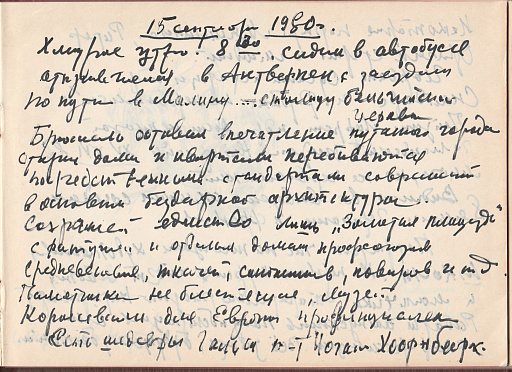 15 сентября 1980г.
Хмурое утро. 8 30. сидим в автобусе
отправляемся в Антверпен с заездом
по пути в Малин... столицу бельгийской
церкви
Брюссель оставил впечатление путаного города
старые дома и кварталы перебиваются
посредственными стандартами современной
в основном бездарной архитектуры.
Сохраняет единство лишь „Золотая площадь"
с ратушей и отделом домами профсоюзов
средневековья, ткачей поваров и т д.
Памятники не блестящие, музей
Королевский для Европы провинциален
Есть шедевры Гальса п-т Иоган Хоорнбеек.